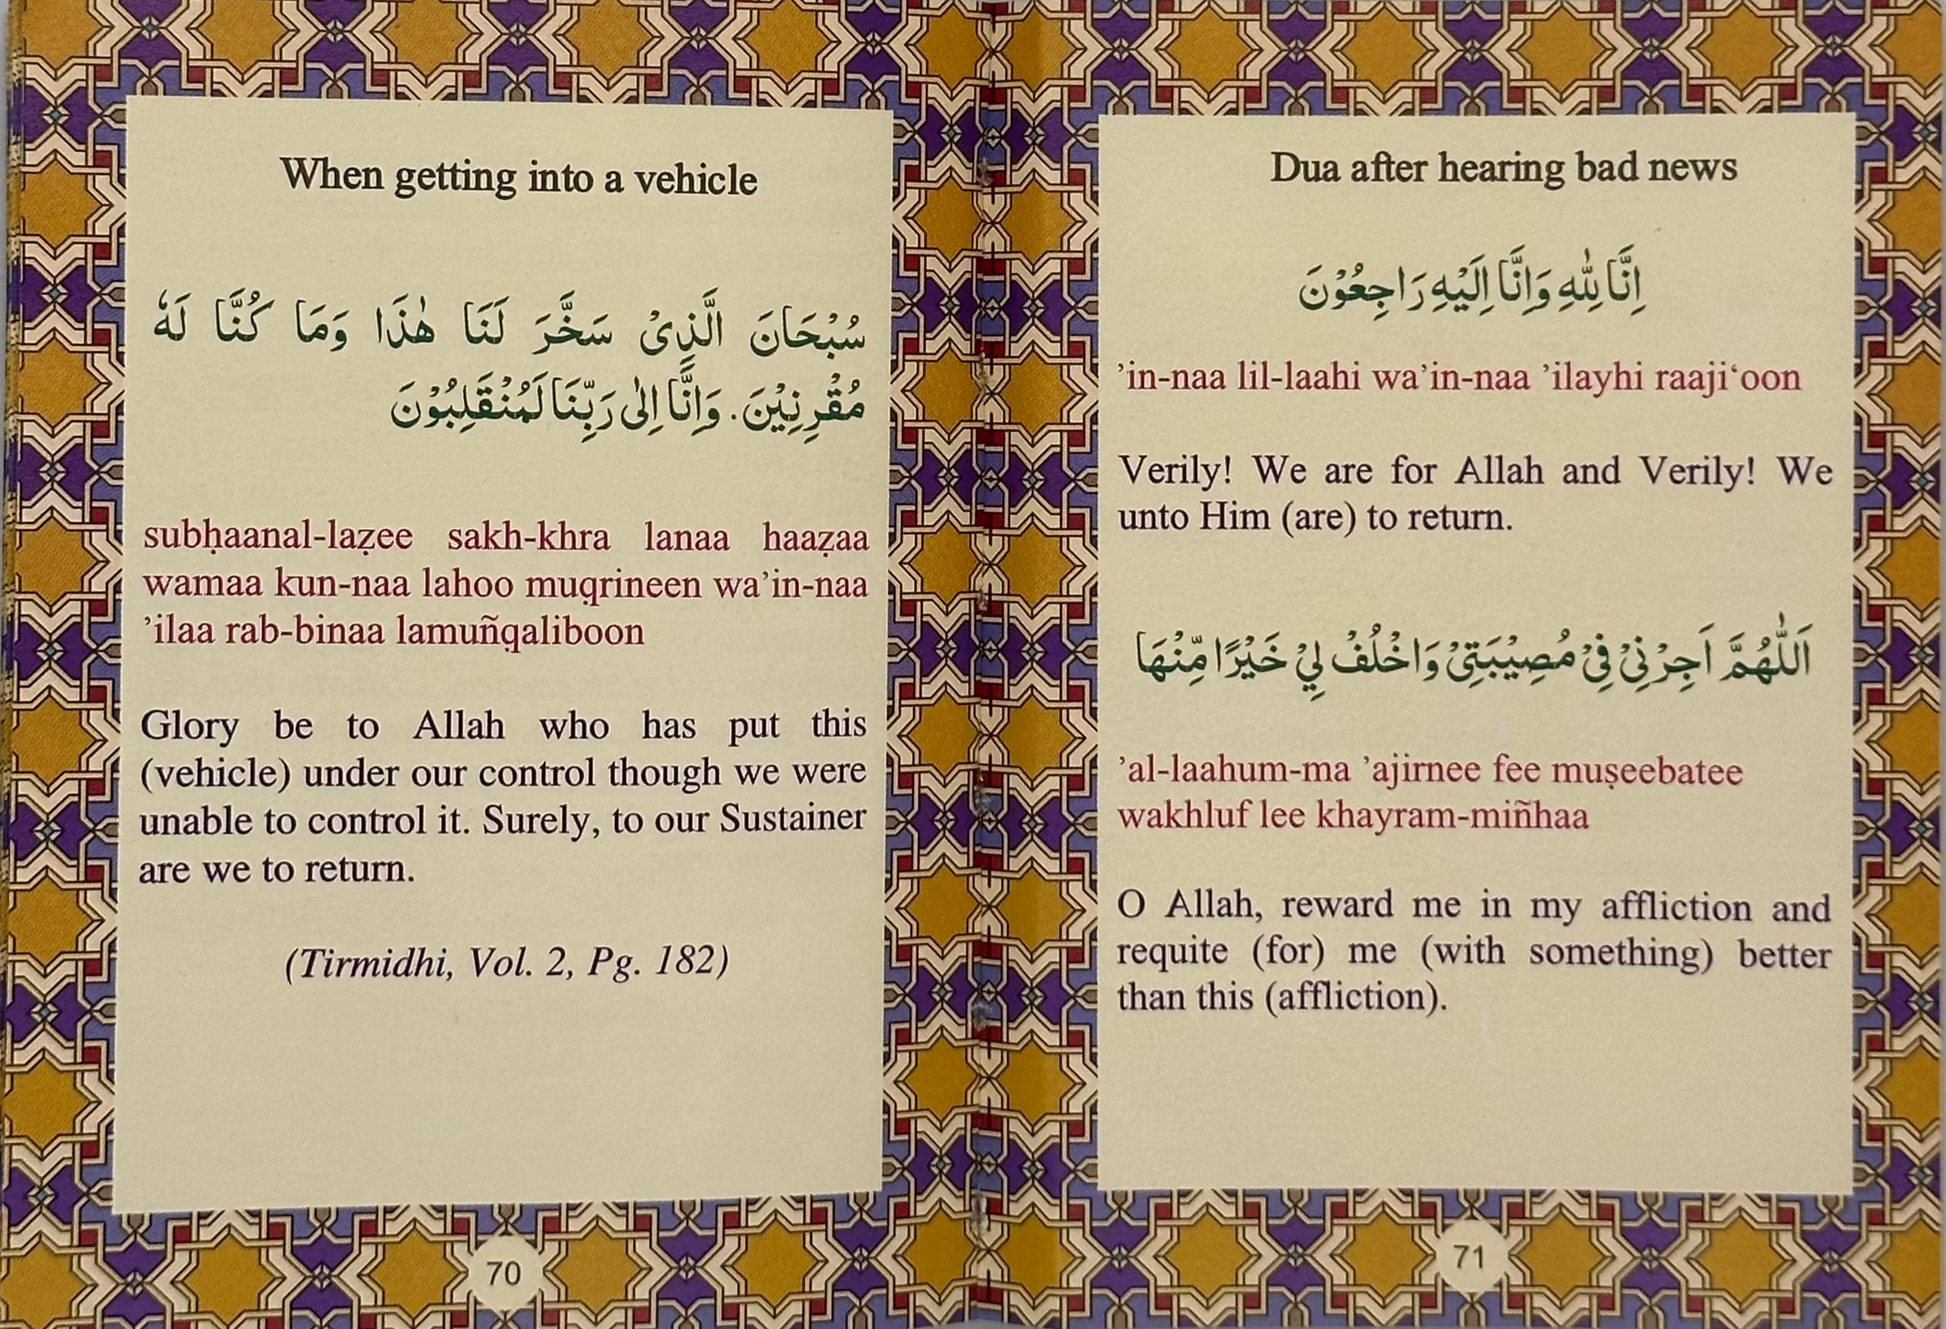 When getting into a vehicle
سُبْحَانَ الَّذِيْ سَخَّرَ لَنَا هٰذَا وَمَا كُنَّا لَهٗ
مُقْرِنِيْنَ. وَاِنَّا اِلٰى رَبِّنَا لَمُنْقَلِبُوْنَ
subḥaanal-laẓee sakh-khra lanaa haaẓaa
wamaa kun-naa lahoo muqrineen wa’in-naa
’ilaa rab-binaa lamuñqaliboon
Glory be to Allah who has put this
(vehicle) under our control though we were
unable to control it. Surely, to our Sustainer
are we to return.
(Tirmidhi, Vol. 2, Pg. 182)
70
Dua after hearing bad news
اِنَّا لِلّٰهِ وَاِنَّا اِلَيْهِ رَاجِعُوْنَ
’in-naa lil-laahi wa’in-naa ’ilayhi raaji‘oon
Verily! We are for Allah and Verily! We
unto Him (are) to return.
اَللّٰهُمَّ اَجِرْنِيْ فِيْ مُصِيْبَتِيْ وَاخْلُفْ لِيْ خَيْرًا مِّنْهَا
’al-laahum-ma ’ajirnee fee muṣeebatee
wakhluf lee khayram-miñhaa
O Allah, reward me in my affliction and
requite (for) me (with something) better
than this (affliction).
71